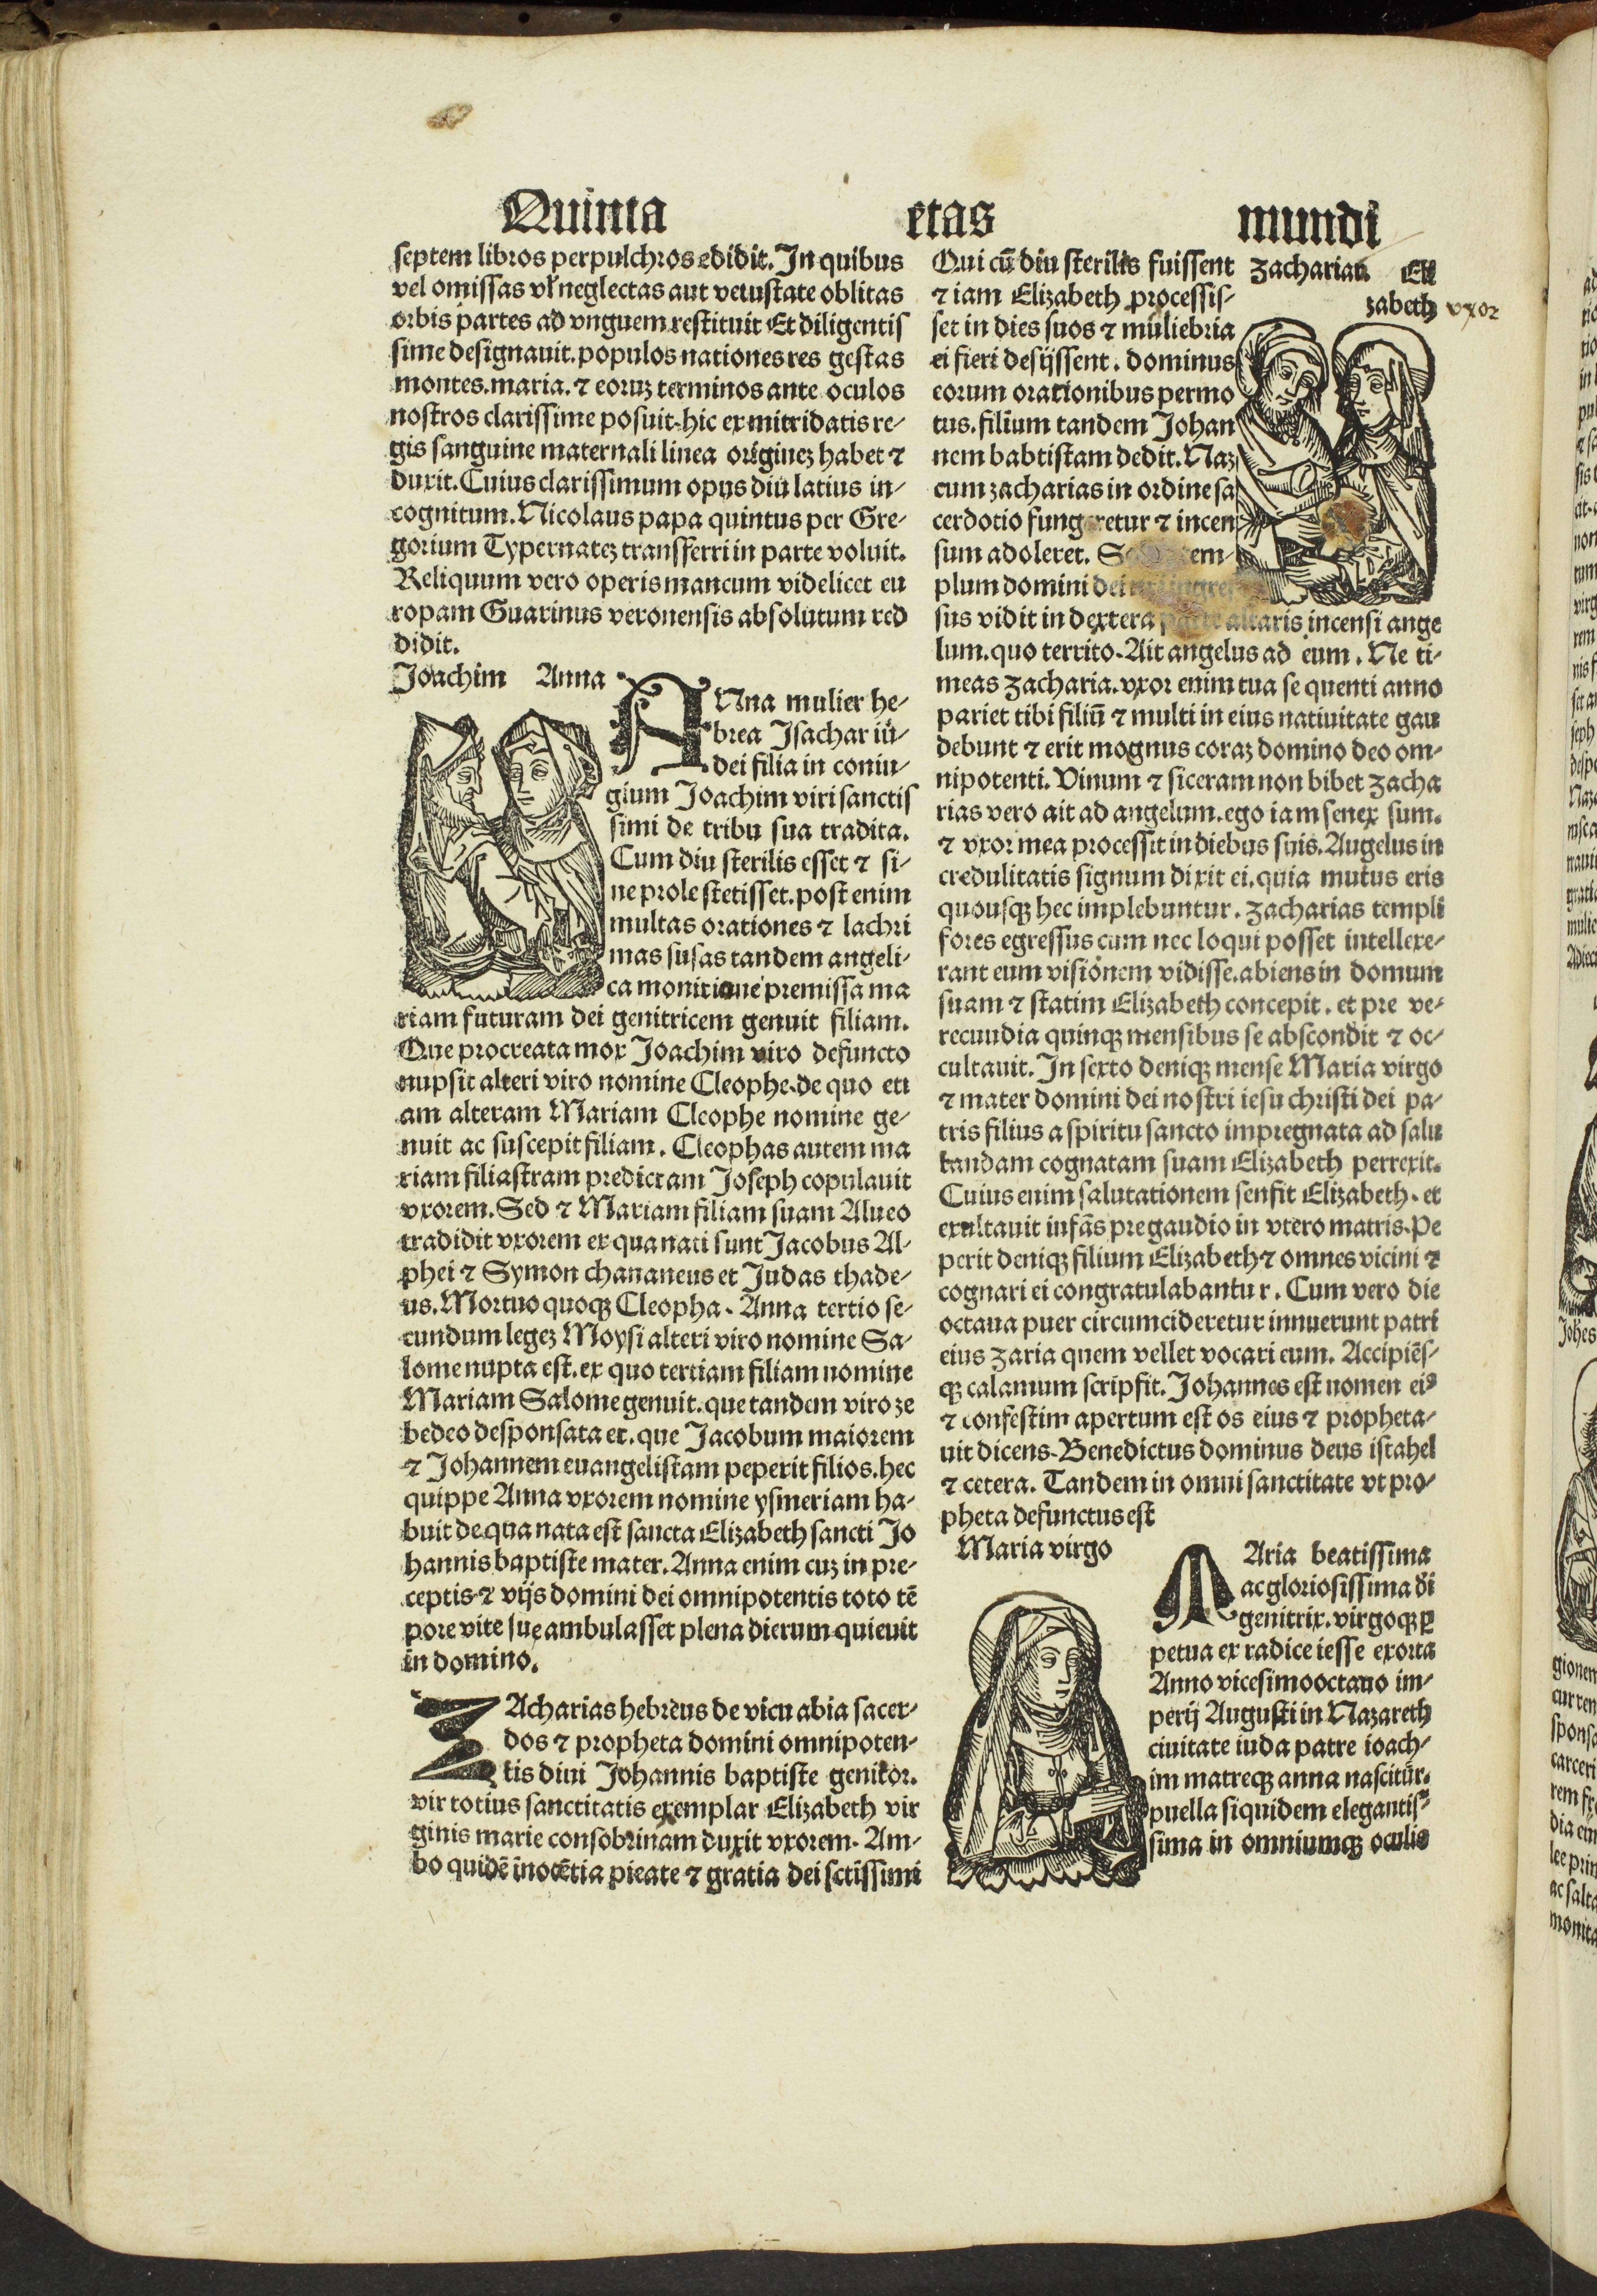 Quinta etas mundi
septem libros perpulchros edidit. In quibus
vel omissas vł neglectas aut vetustate oblitas
orbis partes ad vnguem restituit Et diligentis
sime designauit. populos nationes res gestas
montes. maria. ⁊ eoruꝫ terminos ante oculos
nostros clarissime posuit. hic ex mitridatis re-
gis sanguine maternali linea origineꝫ habet ⁊
duxit. Cuius clarissimum opus diu latius in-
cognitum. Nicolaus papa quintus per Gre-
gorium Typernateꝫ transferri in parte voluit.
Reliquum vero operis mancum videlicet eu
ropam Guarinus veronensis absolutum red
didit.
Joachim Anna
ANna mulier he-
brea Isachar iu-
dei filia in coniu-
gium Joachim viri sanctis
simi de tribu sua tradita.
Cum diu sterilis esset ⁊ si-
ne prole stetisset. post enim
multas orationes ⁊ lachri
mas fusas tandem angeli-
ca monitione premissa ma
riam futuram dei genitricem genuit filiam.
Que procreata mox Joachim viro defuncto
nupsit alteri viro nomine Cleophe. de quo eti
am alteram Mariam Cleophe nomine ge-
nuit ac suscepit filiam. Cleophas autem ma
riam filiastram predictam Joseph copulauit
vxorem. Sed ⁊ Mariam filiam suam Alueo
tradidit vxorem ex qua nati sunt Jacobus Al-
phei ⁊ Symon chananeus et Judas thade-
us. Mortuo quoqꝫ Cleopha. Anna tertio se-
cundum legeꝫ Moysi alteri viro nomine Sa-
lome nupta est. ex quo tertiam filiam nomine
Mariam Salome genuit. que tandem viro ze
bedeo desponsata et. que Jacobum maiorem
⁊ Johannem euangelistam peperit filios. hec
quippe Anna vxorem nomine ysmeriam ha-
buit de qua nata est sancta Elizabeth sancti Jo
hannis baptiste mater. Anna enim cuꝫ in pre-
ceptis ⁊ vijs domini dei omnipotentis toto tē
pore vite sue ambulasset plena dierum quieuit
in domino.
ZAcharias hebreus de vicu abia sacer-
dos ⁊ propheta domini omnipoten-
tis diui Johannis baptiste genitor.
vir totius sanctitatis exemplar Elizabeth vir
ginis marie consobrinam duxit vxorem. Am-
bo quidē inocētia pieate ⁊ gratia dei sctissimi
Qui cū diu steriles fuissent
⁊ iam Elizabeth processis-
set in dies suos ⁊ muliebria
ei fieri desijssent. dominus
eorum orationibus permo
tus. filium tandem Johan
nem babtistam dedit. Naꝫ
cum zacharias in ordine sa
cerdotio fungeretur ⁊ incen
sum adoleret. tem-
plum domini dei ingres
sus vidit in dextera parte altaris incensi ange
lum. quo territo. Ait angelus ad eum. Ne ti-
meas zacharia. vxor enim tua se quenti anno
pariet tibi filiū ⁊ multi in eius natiuitate gau
debunt ⁊ erit mognus coraꝫ domino deo om-
nipotenti. Vinum ⁊ siceram non bibet zacha
rias vero ait ad angelum. ego iam senex sum.
⁊ vxor mea processit in diebus suis. Augelus in
credulitatis signum dixit ei. quia mutus eris
quousqꝫ hec implebuntur. zacharias templi
fores egressus cum nec loqui posset intellexe-
rant eum visionem vidisse. abiens in domum
suam ⁊ statim Elizabeth concepit. et pre ve-
recuudia quinqꝫ mensibus se abscondit ⁊ oc-
cultauit. In sexto deniqꝫ mense Maria virgo
⁊ mater domini dei nostri iesu christi dei pa-
tris filius a spiritu sancto impregnata ad salu
tandam cognatam suam Elizabeth perrexit.
Cuius enim salutationem sensit Elizabeth. et
exultauit infās pre gaudio in vtero matris. Pe
perit deniqꝫ filium Elizabeth ⁊ omnes vicini ⁊
cognari ei congratulabantur. Cum vero die
octaua puer circumcideretur innuerunt patri
eius zaria quem vellet vocari eum. Accipiēs-
qꝫ calamum scripsit. Johannes est nomen eiꝰ
⁊ confestim apertum est os eius ⁊ propheta-
uit dicens. Benedictus dominus deus istahel
⁊ cetera. Tandem in omni sanctitate vt pro-
pheta defunctus est
zacharian Eli
zabeth vxor
Maria virgo
MAria beatissima
ac gloriosissima di
genitrix. virgoqꝫ ꝑ
petua ex radice iesse exorta
Anno vicesimooctauo im-
perij Augusti in Nazareth
ciuitate iuda patre ioach-
im matreqꝫ anna nascitur.
puella siquidem elegantis-
sima in omniumqꝫ oculis